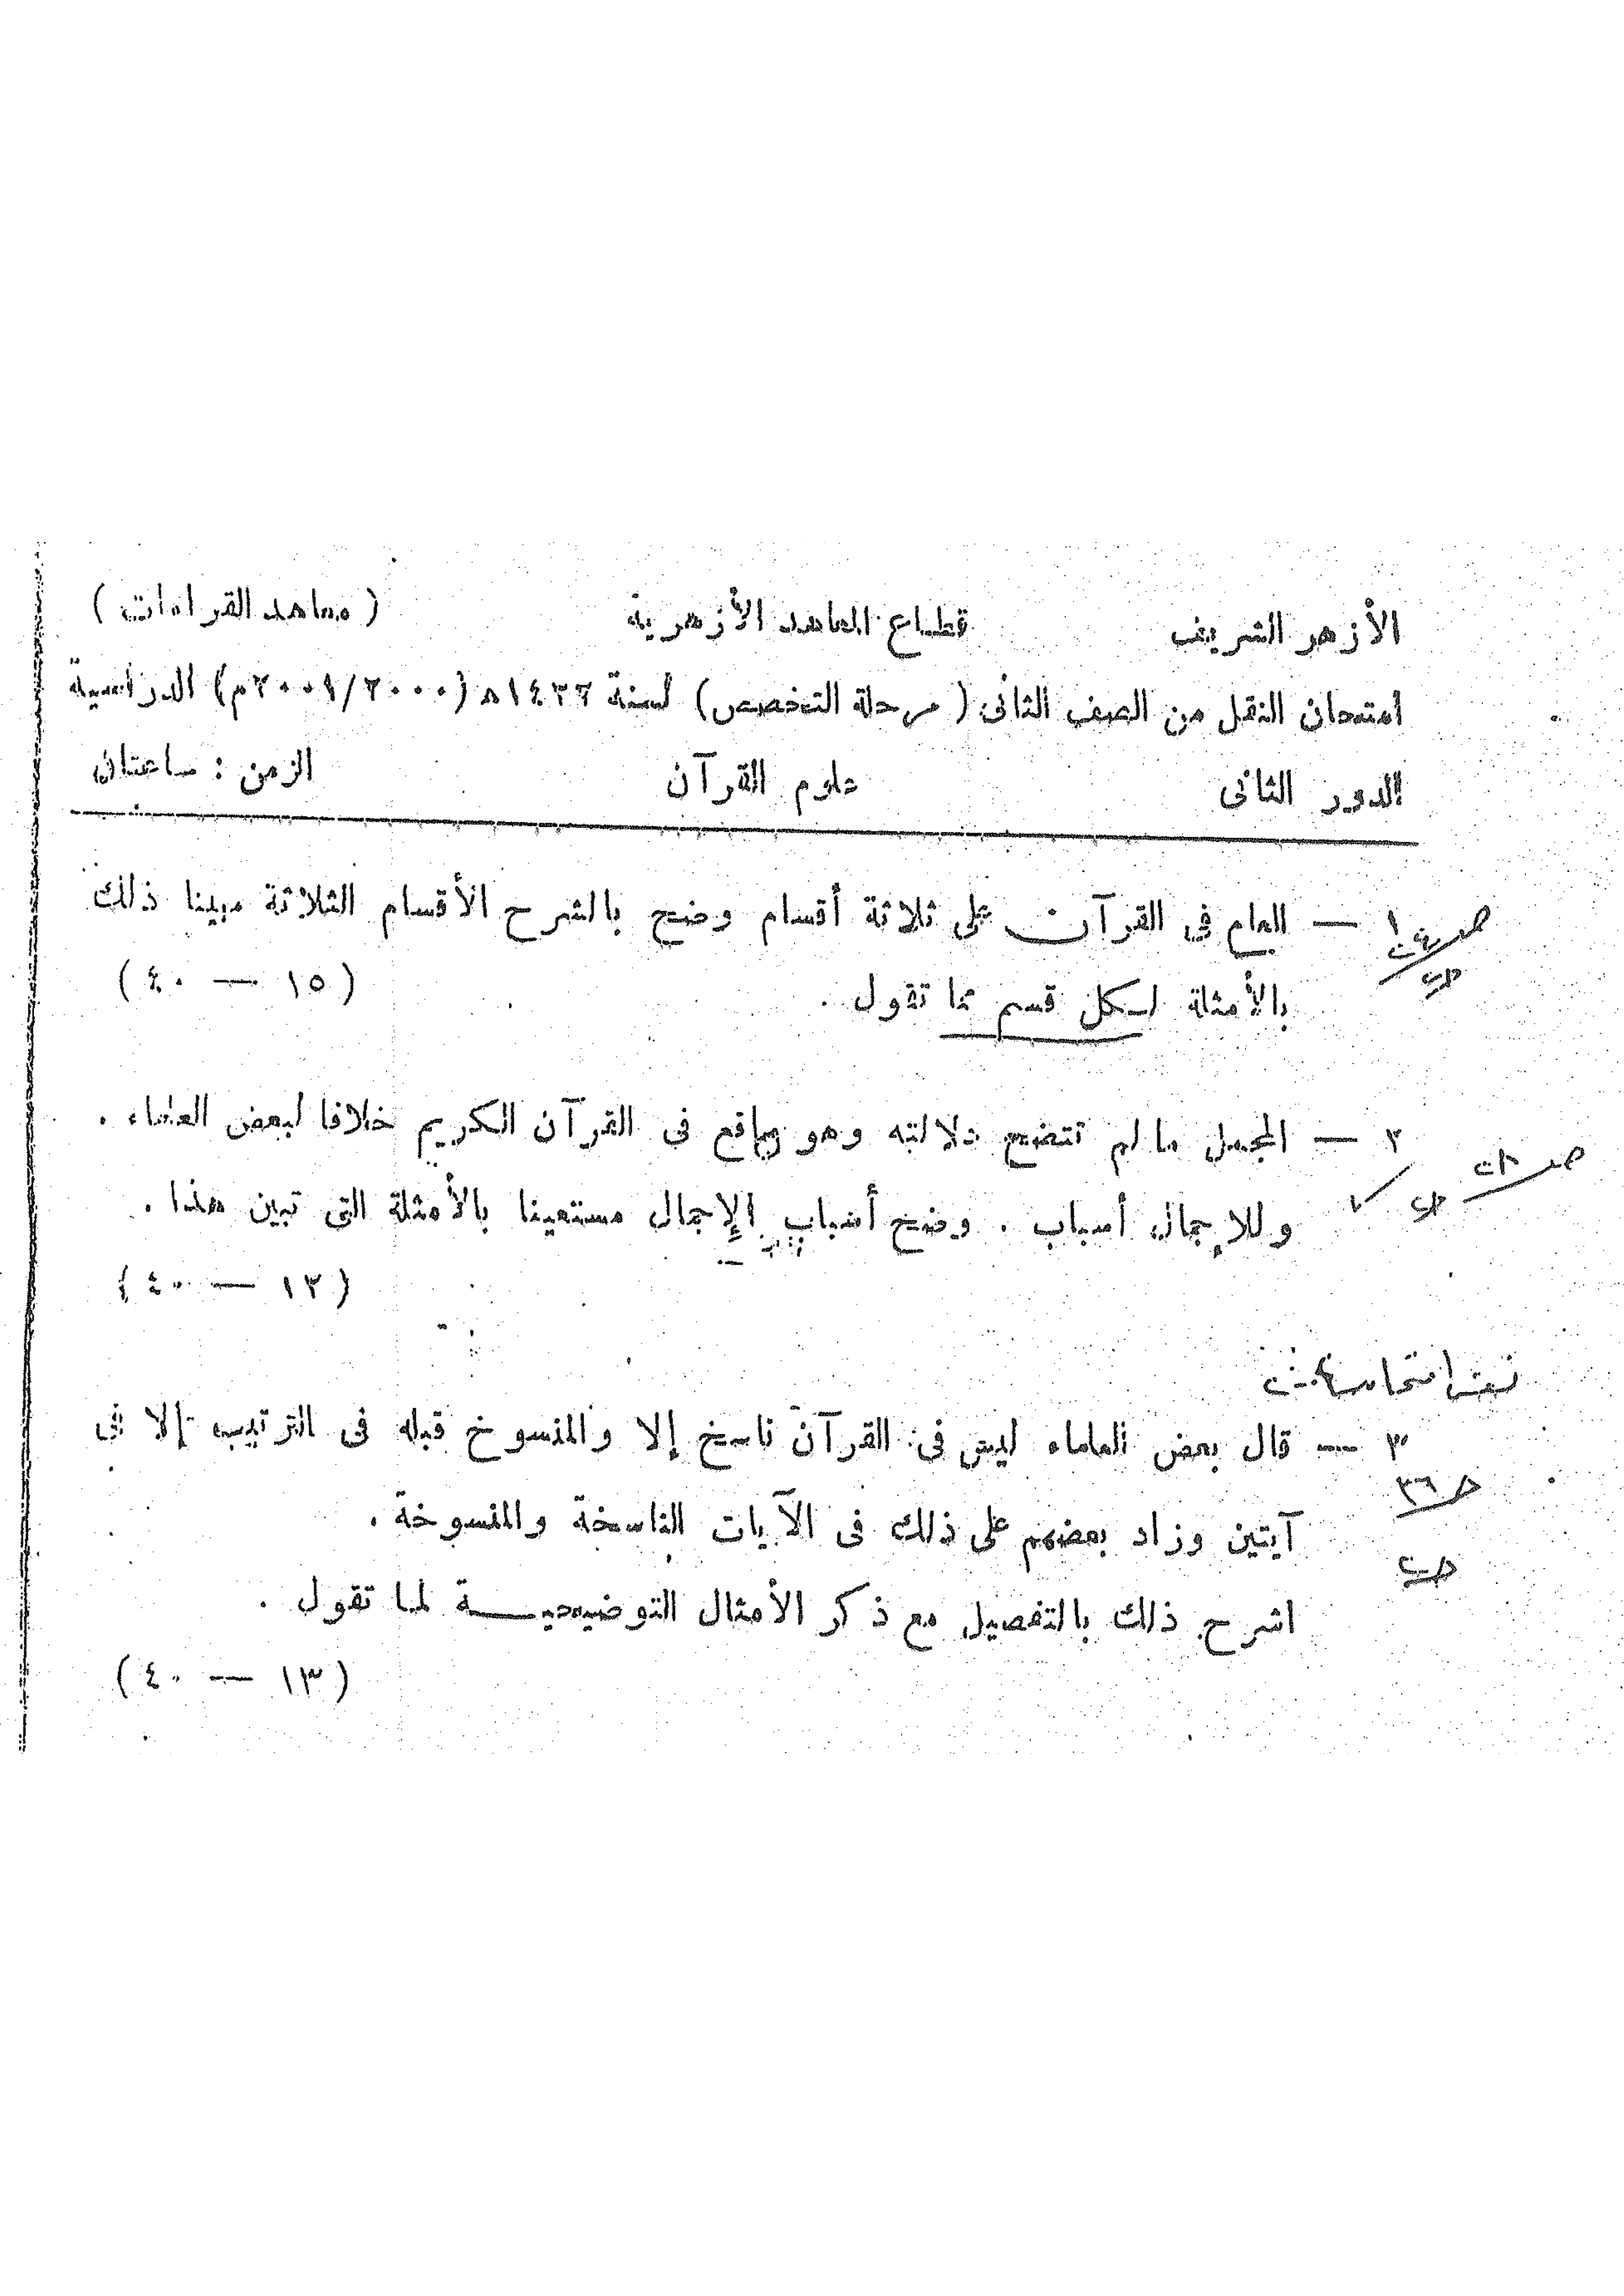 الأزهر الشريف قطاع المعاهد الأزهرية ( معاهد القراءات )
امتحان النقل من الصف الثانى ( مرحلة التخصص ) لسنة (٢٠٠١/٢٠٠٠م) الدراسية
الدور الثانى علوم القرآن الزمن : ساعتان
١ — العام في القرآن على ثلاثة أقسام وضح بالشرح الأقسام الثلاثة مبينا ذلك
بالأمثلة لكل قسم مما تقول .
( ١٥ — ٤٠ )
٢ — المجمل ما لم تتضح دلالته وهو واقع فى القرآن الكريم خلافا لبعض العلماء .
وللإجمال أسباب . وضح أسباب الإجمال مستعينا بالأمثلة التى تبين هذا .
( ١٢ — ٤٠ )
٣ — قال بعض العلماء ليس فى القرآن ناسخ إلا والمنسوخ قبله فى الترتيب إلا فى
ص ٣٦
آيتين وزاد بعضهم على ذلك فى الآيات الناسخة والمنسوخة .
اشرح ذلك بالتفصيل مع ذكر الأمثال التوضيحيـــة لما تقول .
( ١٣ — ٤٠ )